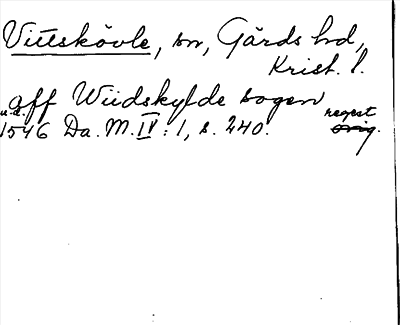 Vittskövle, sn, Gärds hd,
Krist. l.
aff Wiidskylde sogen
u.d. regest
1546 Da. M. IV: 1, s. 240. orig.